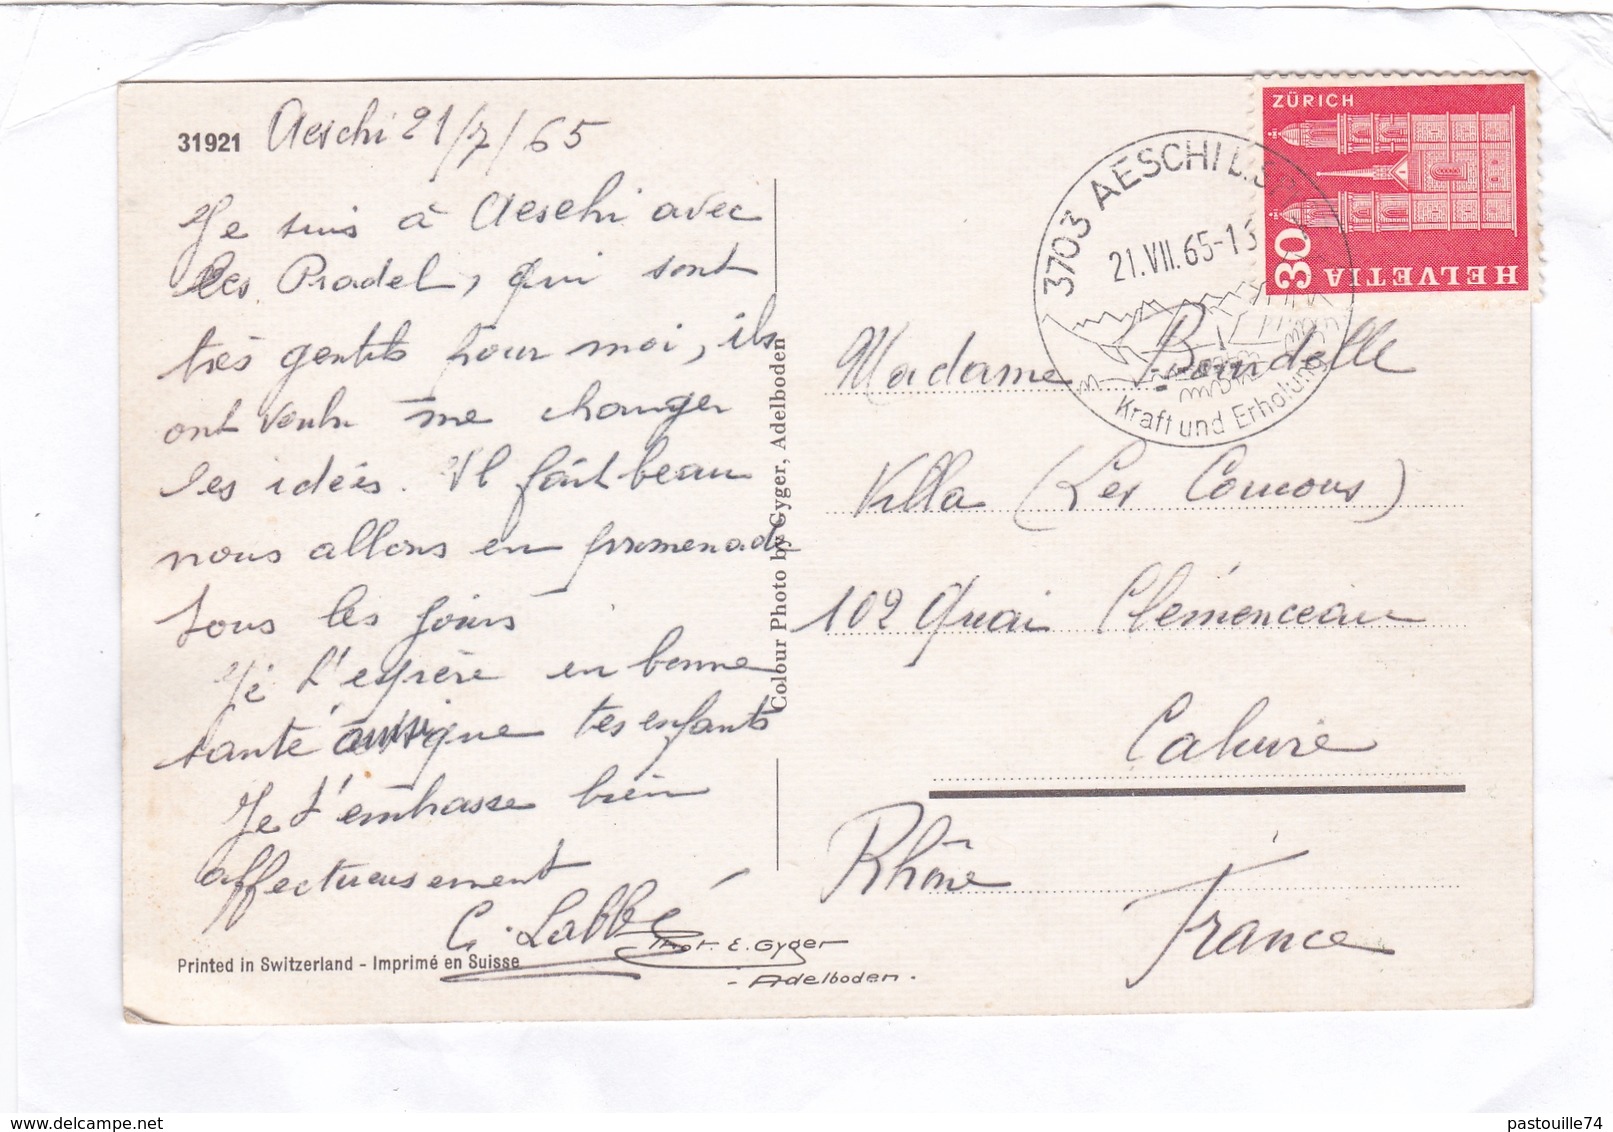 31921 Aeschi 21/7/65
Je suis à Aeschi avec
les Pradel, qui sont
très gentils pour moi, ils
ont voulu me changer
les idées. Il fait beau
nous allons en promenade
tous les jours
Je t'espère en bonne
santé aussi que tes enfants
Je t'embrasse bien
affectueusement
C. Labbé
Printed in Switzerland - Imprimé en Suisse
Phot. E. Gyger
- Adelboden -
Colour Photo by Gyger, Adelboden
ZÜRICH
30
HELVETIA
3703 AESCHI B.SP
21.VII.65-13
Kraft und Erholung
Madame Bourdelle
Villa (Les Coucous)
102 Quai Clémenceau
Caluire
Rhône
France
pastouille74